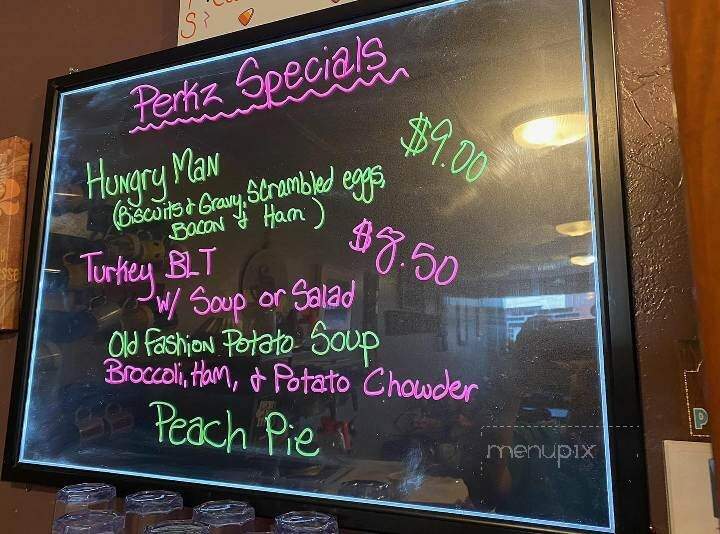 Perkz Specials
Hungry Man $9.00
(Biscuits & Gravy, Scrambled eggs,
Bacon & Ham)
Turkey BLT $8.50
w/ Soup or Salad
Old Fashion Potato Soup
Broccoli, Ham, & Potato Chowder
Peach Pie
menupix